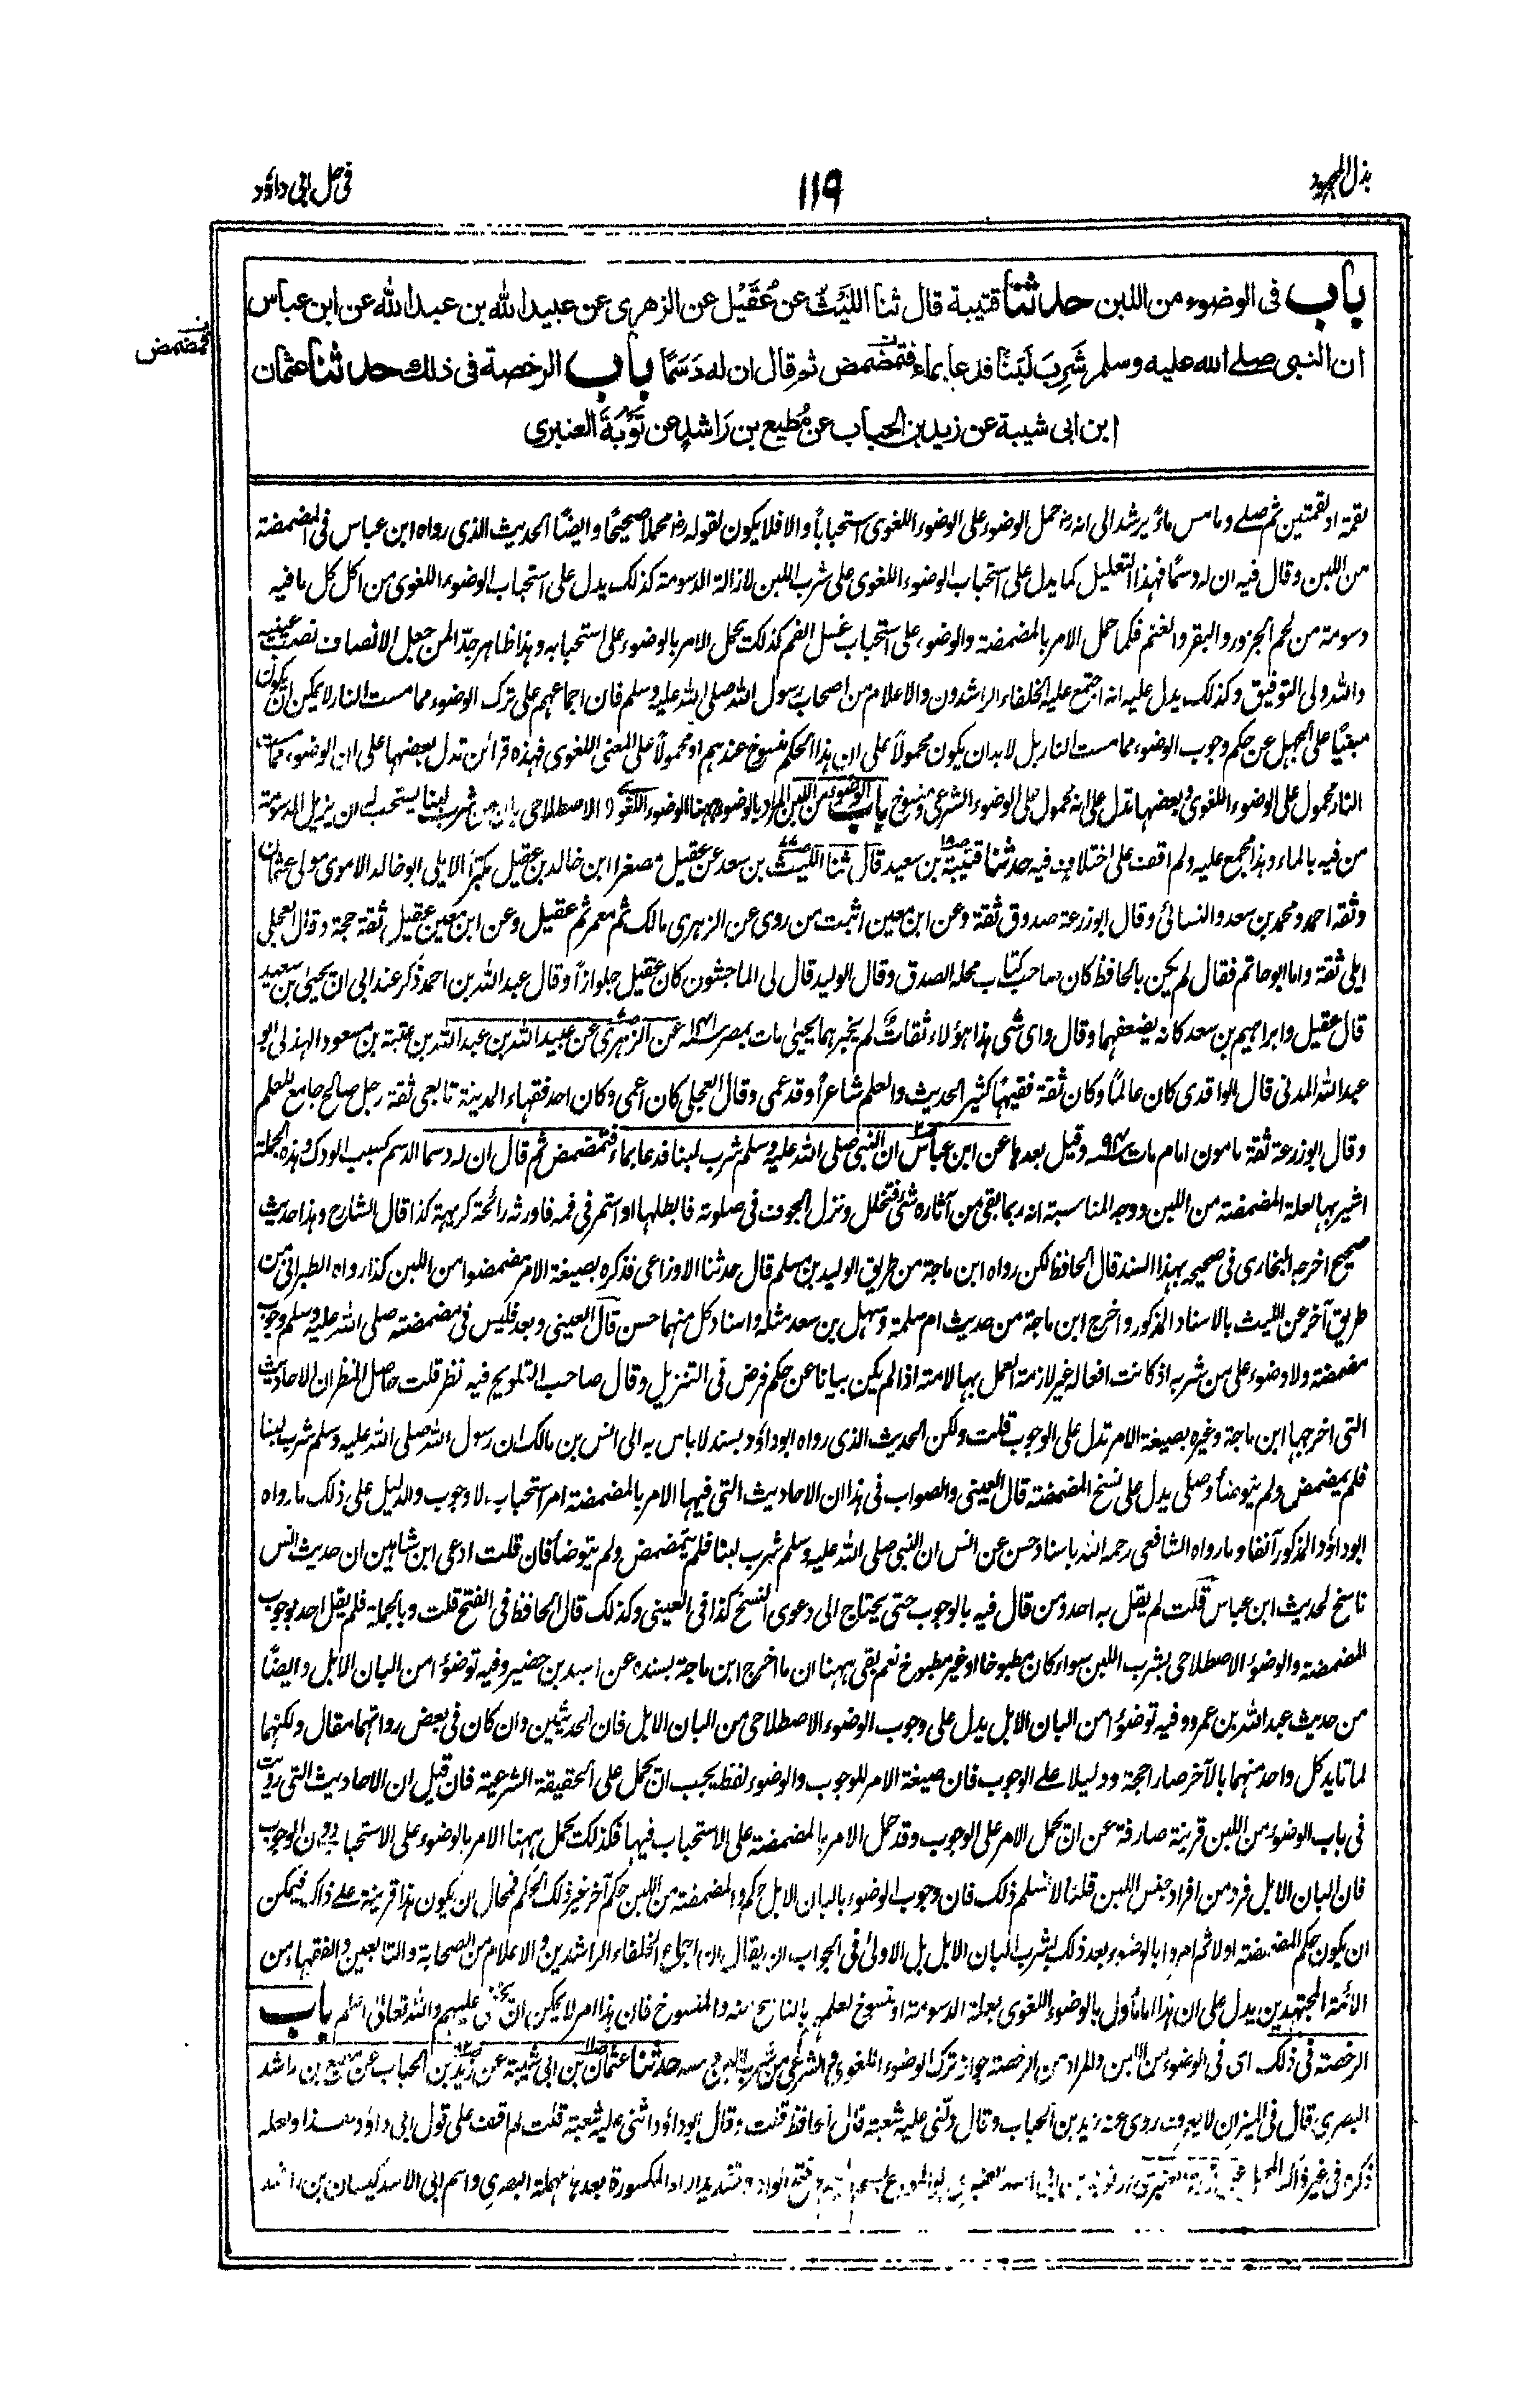 بذل المجهود
١١٩
فی حل ابی داؤد
باب فی الوضوء من اللبن حدثنا قتیبة قال ثنا اللَّیْثُ عن عُقَیْل عن الزهری عن عبید الله بن عبد الله عن ابن عباس
ان النبی صلے الله علیه وسلم شَرِبَ لَبَنًا فدعا بماء فتمضمض ثم قال ان له دَسَمًا باب الرخصة فی ذلك حدثنا عثمان
ابن ابی شیبة عن زید بن الحباب عن مُطیع بن رَاشد عن تَوْبَةَ العنبری
فمضمض
لقمة او لقمتین ثم صلے وما مس ماءً یرشد الی انه رضہ حمل الوضوء علی الوضوء اللغوی استحبابًا والا فلا یکون لقوله رضہ محملًا صحیحًا وایضًا الحدیث الذی رواه ابن عباس فی المضمضة
من اللبن وقال فیه ان له دسمًا فهذا التعلیل کما یدل علی استحباب الوضوء اللغوی علی شرب اللبن لازالة الدسومة کذلک یدل علی استحباب الوضوء اللغوی من اکل کل ما فیه
دسومة من لحم الجزور والبقر والغنم فکما حمل الامر بالمضمضة والوضوء علی استحباب غسل الفم کذلک یحمل الامر بالوضوء علی استحبابه وهذا ظاهر جدًا لمن جعل الانصاف نصب عینیه
والله ولی التوفیق وکذلک یدل علیه انه اجتمع علیه الخلفاء الراشدون والاعلام من اصحاب رسول الله صلی الله علیه وسلم فان اجماعهم علی ترک الوضوء مما مست النار لا یمکن ان یکون
مبنیًا علی الجهل عن حکم وجوب الوضوء مما مست النار بل لا بد ان یکون محمولًا علی ان هذا الحکم منسوخ عندهم او محمولًا علی المعنی اللغوی فهذه قرائن تدل بعضها علی ان الوضوء مما مست
النار محمول علی الوضوء اللغوی وبعضها تدل علی انه محمول علی الوضوء الشرعی ومنسوخ باب الوضوء من اللبن المراد بالوضوء ههنا الوضوء اللغوی لا الاصطلاحی بان من شرب لبنا یستحب له ان یزیل الدسومة
من فیه بالماء وهذا مجمع علیه ولم اقف علی اختلاف فیه حدثنا قتیبة بن سعید قال ثنا اللیث بن سعد عن عقیل مصغرا ابن خالد بن عقیل مکبرًا الایلی ابو خالد الاموی مولی عثمان
وثقه احمد ومحمد بن سعد والنسائی وقال ابو زرعة صدوق ثقة وعن ابن معین اثبت من روی عن الزهری مالک ثم معمر ثم عقیل وعن ابن معین عقیل ثقة حجة وقال العجلی
ایلی ثقة واما ابو حاتم فقال لم یکن بالحافظ کان صاحب کتاب محله الصدق وقال الولید قال لی الماجشون کان عقیل جلوازًا وقال عبد الله بن احمد ذکر عند ابی ان یحییٰ بن سعید
قال عقیل وابراهیم بن سعد کانه یضعفهما وقال وای شی هذا هؤلاء ثقات لم یخبرهما یحییٰ مات بمصر ١٤١ه عن الزهری عن عبید الله بن عبد الله بن عتبة بن مسعود الهذلی ابو
عبد الله المدنی قال الواقدی کان عالمًا وکان ثقة فقیهًا کثیر الحدیث والعلم شاعرًا وقد عمی وقال العجلی کان اعمی وکان احد فقهاء المدینة تابعی ثقة رجل صالح جامع للعلم
وقال ابو زرعة ثقة مامون امام مات ٩٤ه وقیل بعدها عن ابن عباس ان النبی صلی الله علیه وسلم شرب لبنا فدعا بماء فتمضمض ثم قال ان له دسما الدسم کسبب الودک وهذه الجملة
اشیر بها لعلة المضمضة من اللبن ووجه المناسبة انه ربما بقی من آثاره شئ فتحلل ونزل الجوف فی صلوته فابطلها او استمر فی فمه فاورثه رائحة کریهة کذا قال الشارح وهذا حدیث
صحیح اخرجه البخاری فی صحیحه بهذا السند قال الحافظ لکن رواه ابن ماجة من طریق الولید بن مسلم قال حدثنا الاوزاعی فذکره بصیغة الامر مضمضوا من اللبن کذا رواه الطبرانی من
طریق آخر عن اللیث بالاسناد المذکور واخرج ابن ماجة من حدیث ام سلمة وسهل بن سعد مثله واسناد کل منهما حسن قال العینی وبعد فلیس فی مضمضته صلی الله علیه وسلم وجوب
مضمضة ولا وضوء علی من شربه اذ کانت افعاله غیر لازمة العمل بها لامته اذا لم یکن بیانا عن حکم فرض فی التنزیل وقال صاحب التلویح فیه نظر قلت حاصل النظر ان الاحادیث
التی اخرجها ابن ماجة وغیره بصیغة الامر تدل علی الوجوب قلت ولکن الحدیث الذی رواه ابو داؤد بسند لا باس به الی انس بن مالک ان رسول الله صلی الله علیه وسلم شرب لبنا
فلم یمضمض ولم یتوضأ وصلی یدل علی نسخ المضمضة قال العینی والصواب فی هذا ان الاحادیث التی فیها الامر بالمضمضة امر استحباب لا وجوب والدلیل علی ذلک ما رواه
ابو داؤد المذکور آنفا وما رواه الشافعی رحمه الله باسناد حسن عن انس ان النبی صلی الله علیه وسلم شرب لبنا فلم یتمضمض ولم یتوضأ فان قلت ادعی ابن شاهین ان حدیث انس
ناسخ لحدیث ابن عباس قلت لم یقل به احد ومن قال فیه بالوجوب حتی یحتاج الی دعوی النسخ کذا فی العینی وکذلک قال الحافظ فی الفتح قلت وبالجملة فلم یقل احد بوجوب
المضمضة والوضوء الاصطلاحی بشرب اللبن سواء کان مطبوخا او غیر مطبوخ نعم بقی ههنا ان ما اخرج ابن ماجة بسنده عن اسید بن حضیر وفیه توضؤا من البان الابل وایضًا
من حدیث عبد الله بن عمرو وفیه توضؤا من البان الابل یدل علی وجوب الوضوء الاصطلاحی من البان الابل فان الحدیثین وان کان فی بعض رواتهما مقال ولکنهما
لما تاید کل واحد منهما بالآخر صارا حجة ودلیلا علے الوجوب فان صیغة الامر للوجوب والوضوء لفظ یجب ان یحمل علی الحقیقة الشرعیة فان قیل ان الاحادیث التی رویت
فی باب الوضوء من اللبن قرینة صارفة عن ان یحمل الامر علی الوجوب وقد حمل الامر بالمضمضة علی الاستحباب فیها فکذلک یحمل ههنا الامر بالوضوء علی الاستحباب دون الوجوب
فان البان الابل فرد من افراد جنس اللبن قلنا لا نسلم ذلک فان وجوب الوضوء بالبان الابل حکم والمضمضة من اللبن حکم آخر غیر ذلک الحکم فمحال ان یکون هذا قرینة علے ذاک فیمکن
ان یکون حکم المضمضة اولا ثم امروا بالوضوء بعد ذلک بشرب البان الابل بل الاولیٰ فی الجواب ان یقال ان اجماع الخلفاء الراشدین والاعلام من الصحابة والتابعین والفقهاء من
الائمة المجتهدین یدل علی ان هذا اما مأول بالوضوء اللغوی بعلة الدسومة او منسوخ لعلمهم بالناسخ منه والمنسوخ فان هذا امر لا یمکن ان یخفی علیهم والله تعالیٰ اعلم باب
الرخصة فی ذلک ای فی الوضوء من اللبن والمراد من الرخصة جواز ترک الوضوء اللغوی والشرعی من شرب اللبن ودسمه حدثنا عثمان بن ابی شیبة عن زید بن الحباب عن مطیع بن راشد
البصری قال فی المیزان لا یعرف روی عنه زید بن الحباب وقال دلنی علیه شعبة قال الحافظ قلت وقال ابو داؤد اثنی علیه شعبة قلت لم اقف علی قول ابی داؤد هذا ولعله
ذکره فی غیر هذا المحل عن توبة العنبری بفتح الواو وتشدید الراء المکسورة بعدها مهملة البصری واسم ابی الاسد کیسان بن راشد